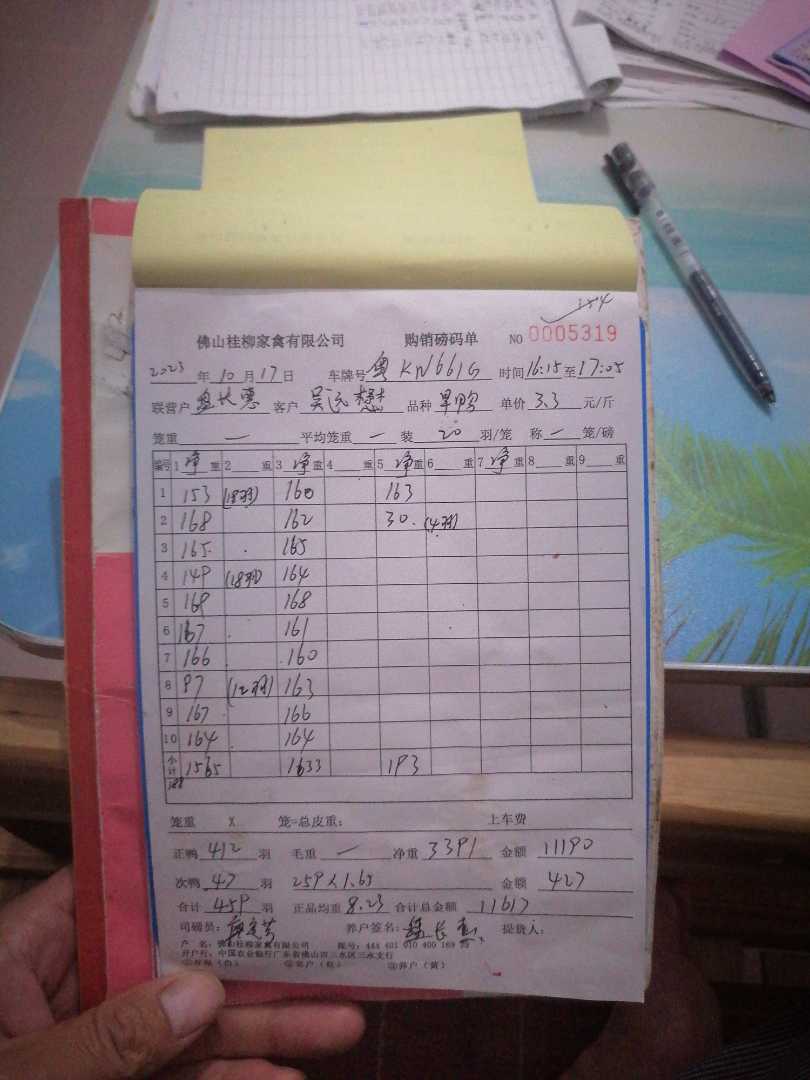 154
佛山桂柳家禽有限公司 购销磅码单 NO 0005319
2023 年 10 月 17 日 车牌号 粤KN661G 时间 16:15 至 17:05
联营户 盘长惠 客户 品种 旱鸭 单价 3.3 元/斤
笼重 — 平均笼重 — 装 20 羽/笼 称 一 笼/磅
编号 1 净 重 2 重 3 净 重 4 重 5 净 重 6 重 7 净 重 8 重 9 重
1 153 (18羽) 160 163
2 168 162 30. (4羽)
3 165 165
4 149 (18羽) 164
5 169 168
6 167 161
7 166 160
8 97 (12羽) 163
9 167 166
10 164 164
小计 1565 1633 193
188
笼重 X 笼=总皮重: 上车费
正鸭 412 羽 毛重 — 净重 3391 金额 11190
次鸭 47 羽 259×1.65 金额 427
合计 459 羽 正品均重 8.23 合计总金额 11617
司磅员: 养户签名: 盘长惠 提货人:
户 名: 佛山桂柳家禽有限公司 账号: 444 401 010 400 169
开户行: 中国农业银行广东省佛山市三水区三水支行
①存根(白) ②客户(红) ③养户(黄)